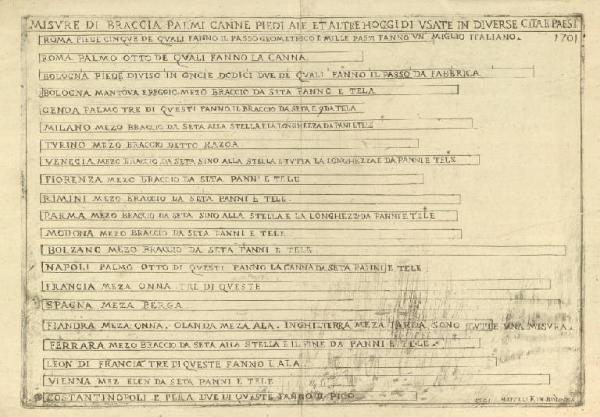 MISVRE DI BRACCIA PALMI CANNE PIEDI ALE ET ALTRE HOGGI DI VSATE IN DIVERSE CITA E PAESI
ROMA PIEDE CINQVE DE QVALI FANNO IL PASSO GEOMETRICO E MILLE PASSI FANNO VN MIGLIO ITALIANO. 1701
ROMA PALMO OTTO DE QVALI FANNO LA CANNA
BOLOGNA PIEDE DIVISO IN ONCIE DODICI DVE DE QVALI FANNO IL PASSO DA FABBRICA
BOLOGNA MANTOVA E REGGIO. MEZO BRACCIO DA SETA PANNO E TELA
GENOA PALMO TRE DI QVESTI FANNO IL BRACCIO DA SETA E DA TELA
MILANO MEZO BRACCIO DA SETA ALLA STELLA E LA LONGHEZZA DA PANI E TELE
TVRINO MEZO BRACCIO DETTO RAZOA
VENECIA MEZO BRACCIO DA SETA SINO ALLA STELLA E TVTTA LA LONGHEZZA E DA PANNI E TELE
FIORENZA MEZO BRACCIO DA SETA PANNI E TELE
RIMINI MEZO BRACCIO DA SETA PANNI E TELE.
PARMA MEZO BRACCIO DA SETA SINO ALLA STELLA E LA LONGHEZZ DA PANNI E TELE
MODONA MEZO BRACCIO DA SETA PANNI E TELE
BOLZANO MEZO BRACCIO DA SETA PANNI E TELE
NAPOLI PALMO OTTO DI QVESTI FANNO LA CANNA DA SETA PANNI E TELE
FRANCIA MEZA ONNA. TRE DI QVESTE
SPAGNA MEZA BERGA
FIANDRA MEZA ONNA. OLANDA MEZA ALA. INGHILTERRA MEZA IARDA SONO TVTTE VNA MISVRA.
FERRARA MEZO BRACCIO DA SETA ALLA STELLA E IL FINE DA PANNI E TELE
LEON DI FRANCIA TRE DI QVESTE FANNO L ALA
VIENNA MEZ ELEN DA SETA PANNI E TELE
COSTANTINOPOLI E PERA DVE DI QVESTE FANNO IL PICO
MITELLI F. IN BOLOGNA